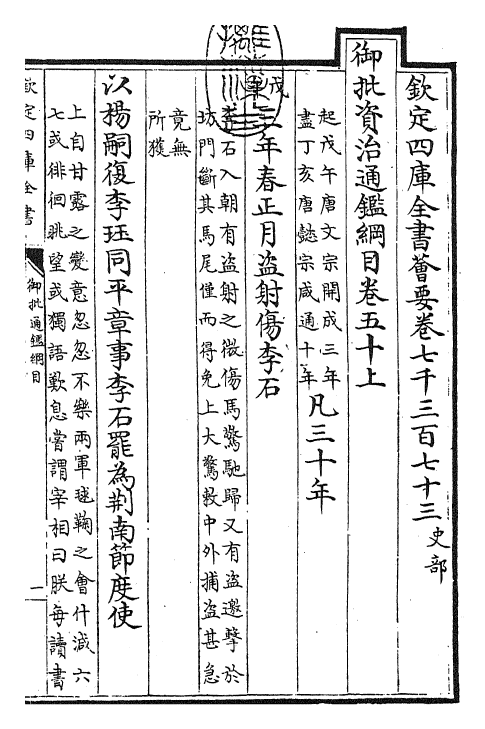 欽定四庫全書薈要卷七千三百七十三 史部
御批資治通鑑綱目卷五十上
起戊午唐文宗開成三年
盡丁亥唐懿宗咸通十年
凡三十年
戊午
三年春正月盜射傷李石
李石入朝有盜射之微傷馬驚馳歸又有盜邀擊於
坊門斷其馬尾僅而得免上大驚敕中外捕盜甚急
竟無
所獲
以楊嗣復李珏同平章事李石罷為荆南節度使
上自甘露之變意忽忽不樂兩軍毬鞠之會什減六
七或徘徊眺望或獨語歎息嘗謂宰相曰朕每讀書
欽定四庫全書
御批通鑑綱目
一